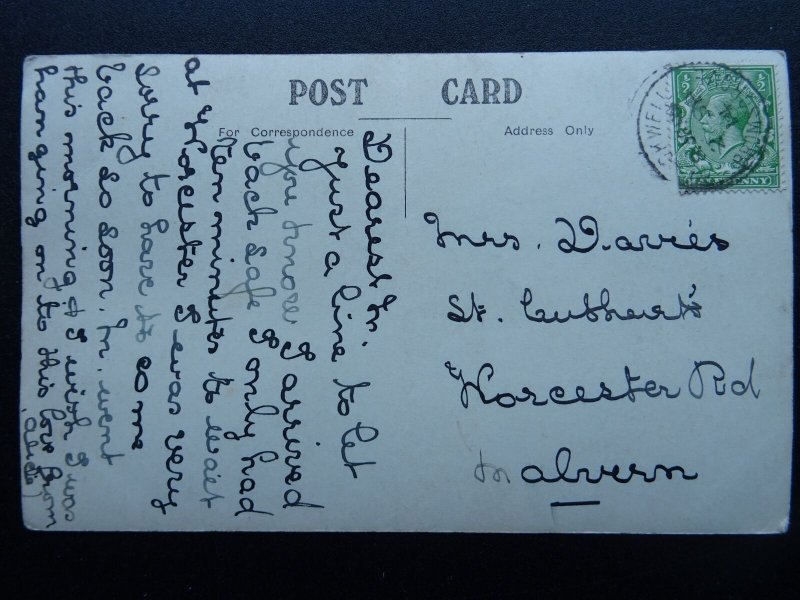 POST CARD
For Correspondence
Address Only
Dearest Fr.
Just a line to let
you know I arrived
back safe I only had
Ten minutes to wait
at Worcester I was very
Sorry to have to come
back so soon. Fr. went
this morning & I wish I was
hanging on to this love from
Alice
Mrs. Davies
St. Cuthbert's
Worcester Rd
Malvern